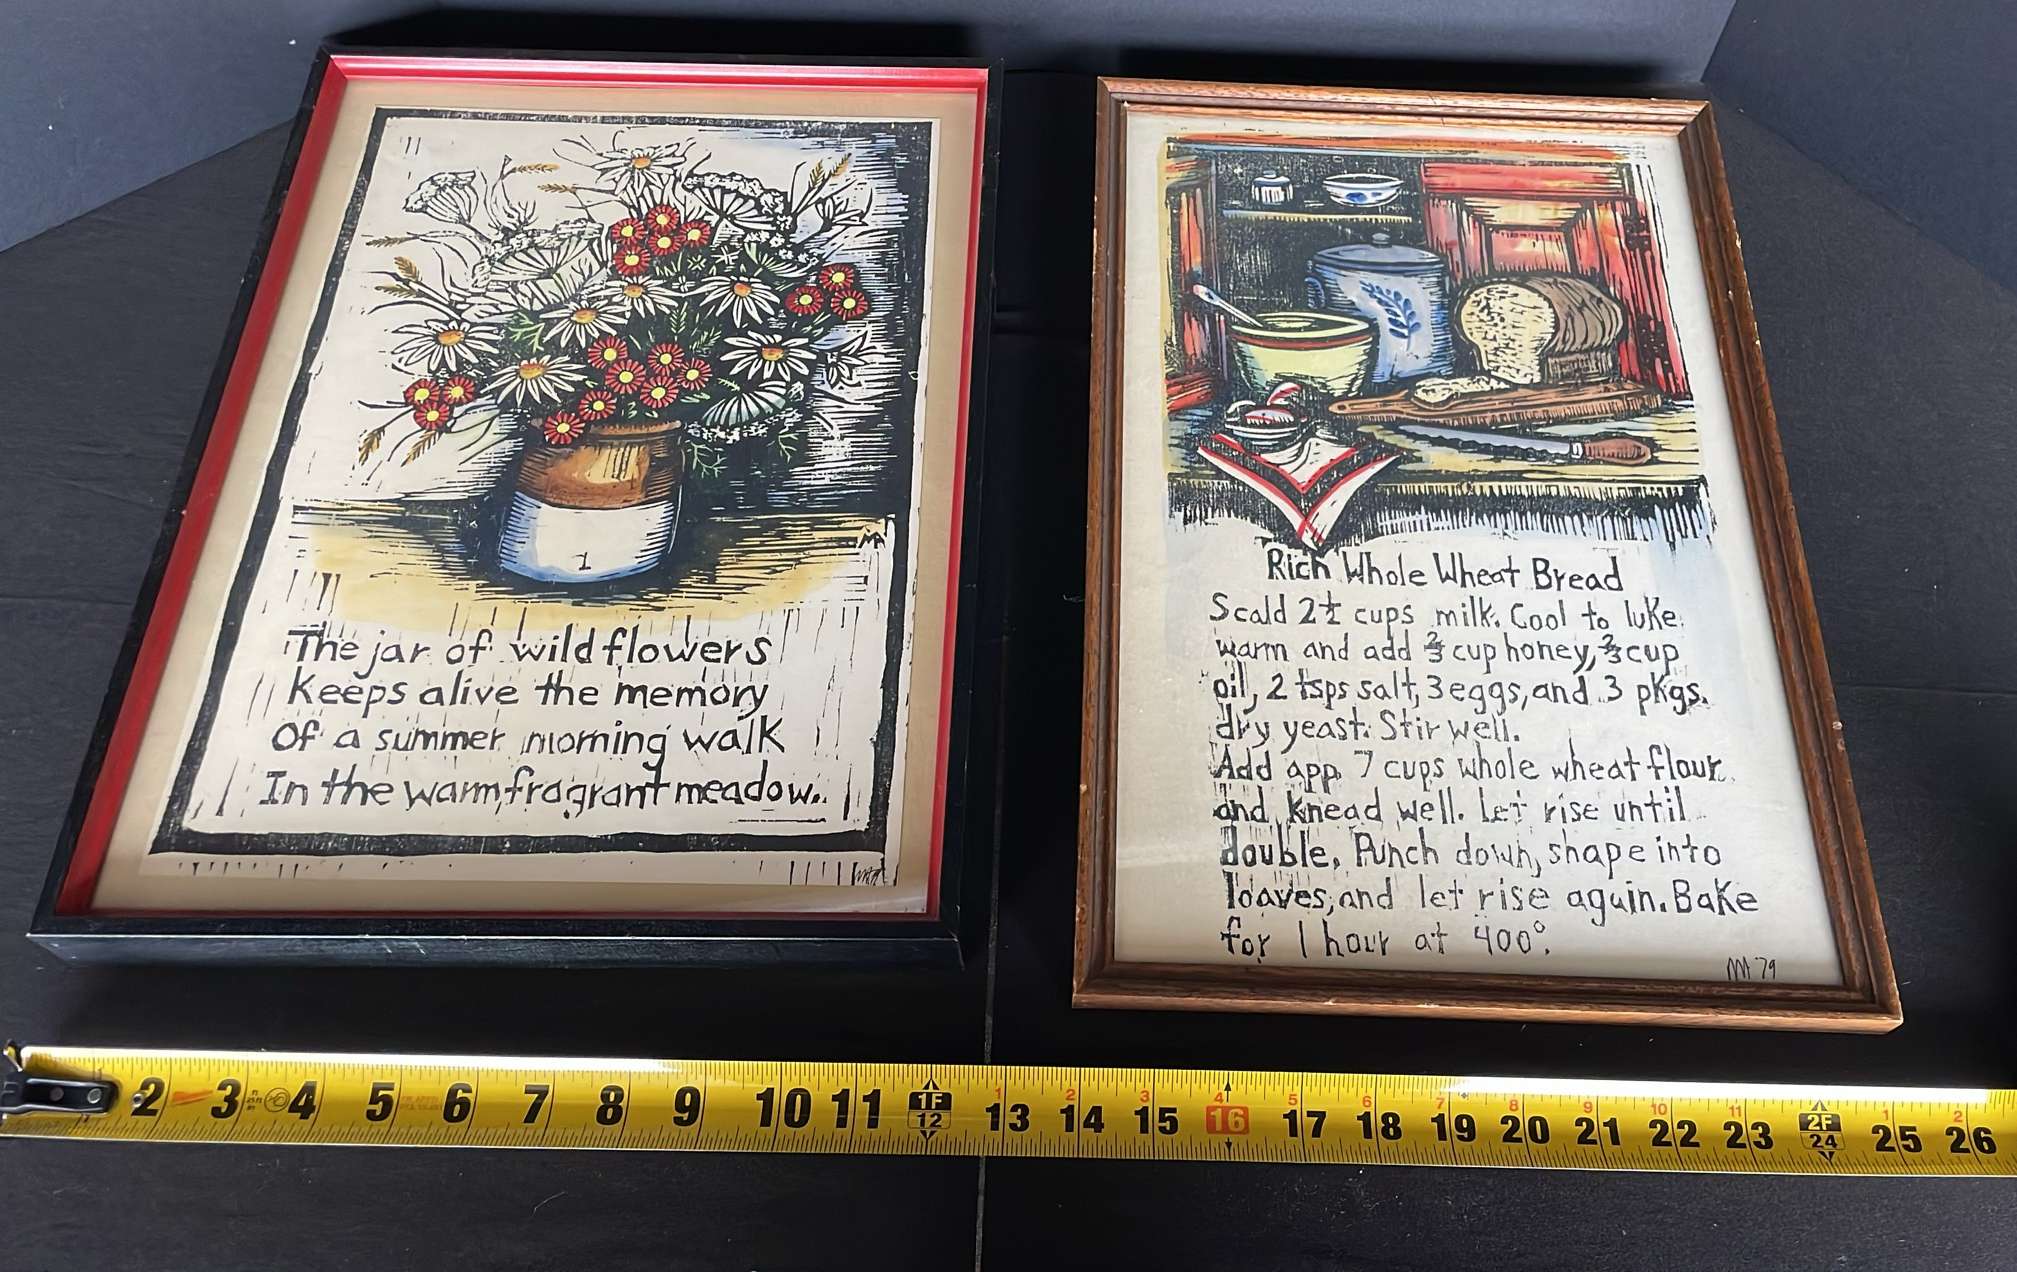 The jar of wild flowers
Keeps alive the memory
Of a summer morning walk
In the warm, fragrant meadow.
1
Rich Whole Wheat Bread
Scald 2½ cups milk. Cool to luke
warm and add ⅔ cup honey, ⅔ cup
oil, 2 tsps salt, 3 eggs, and 3 pkgs.
dry yeast. Stir well.
Add app. 7 cups whole wheat flour
and knead well. Let rise until
double. Punch down, shape into
loaves, and let rise again. Bake
for 1 hour at 400°.
MA '79
1 2 3 4 5 6 7 8 9 10 11 1F 12 13 14 15 16 17 18 19 20 21 22 23 2F 24 25 26
1 2 3 4 5 6 7 8 9 10 11 1 2